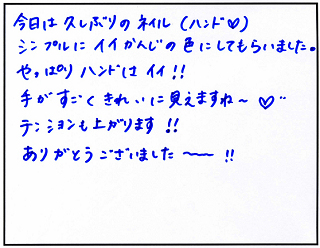 今日は久しぶりのネイル(ハンド♡)
シンプルにイイかんじの色にしてもらいました。
やっぱりハンドはイイ!!
手がすごくきれいに見えますね〜♡
テンションも上がります!!
ありがとうございました〜〜!!